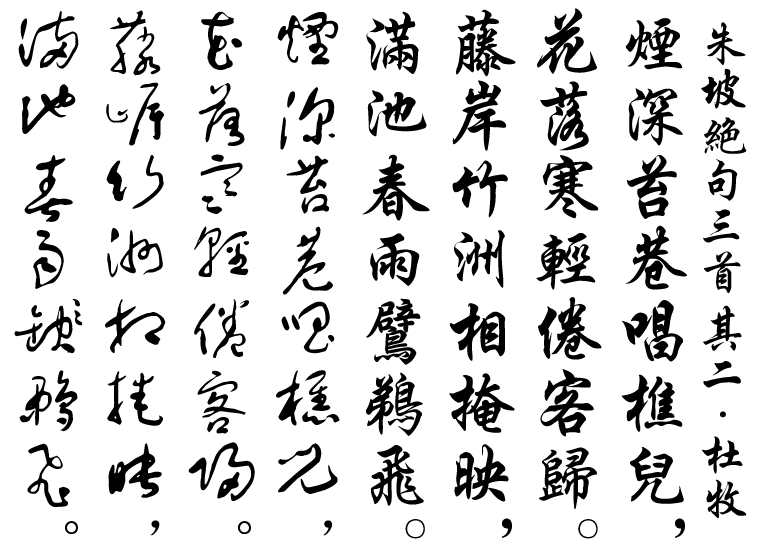 朱坡絕句三首其二·杜牧
煙深苔巷唱樵兒，
花落寒輕倦客歸。
藤岸竹洲相掩映，
滿池春雨鸊鵜飛。
煙深苔巷唱樵兒，
花落寒輕倦客歸。
藤岸竹洲相掩映，
滿池春雨鸊鵜飛。